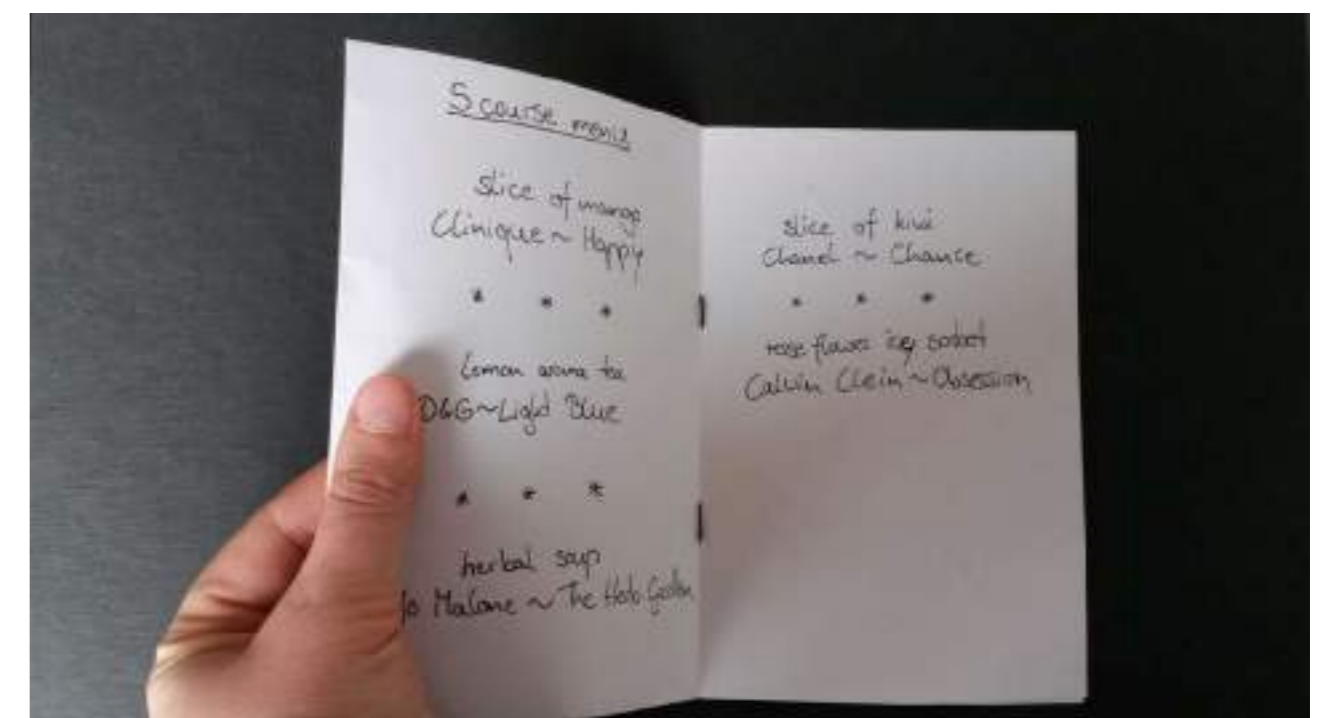 5 course menu
slice of mango
Clinique ~ Happy
* * *
Lemon aroma tea
D&G ~ Light Blue
* * *
herbal soup
Jo Malone ~ The Herb Garden
slice of kiwi
Chanel ~ Chance
* * *
rose flower icy sorbet
Calvin Clein ~ Obsession